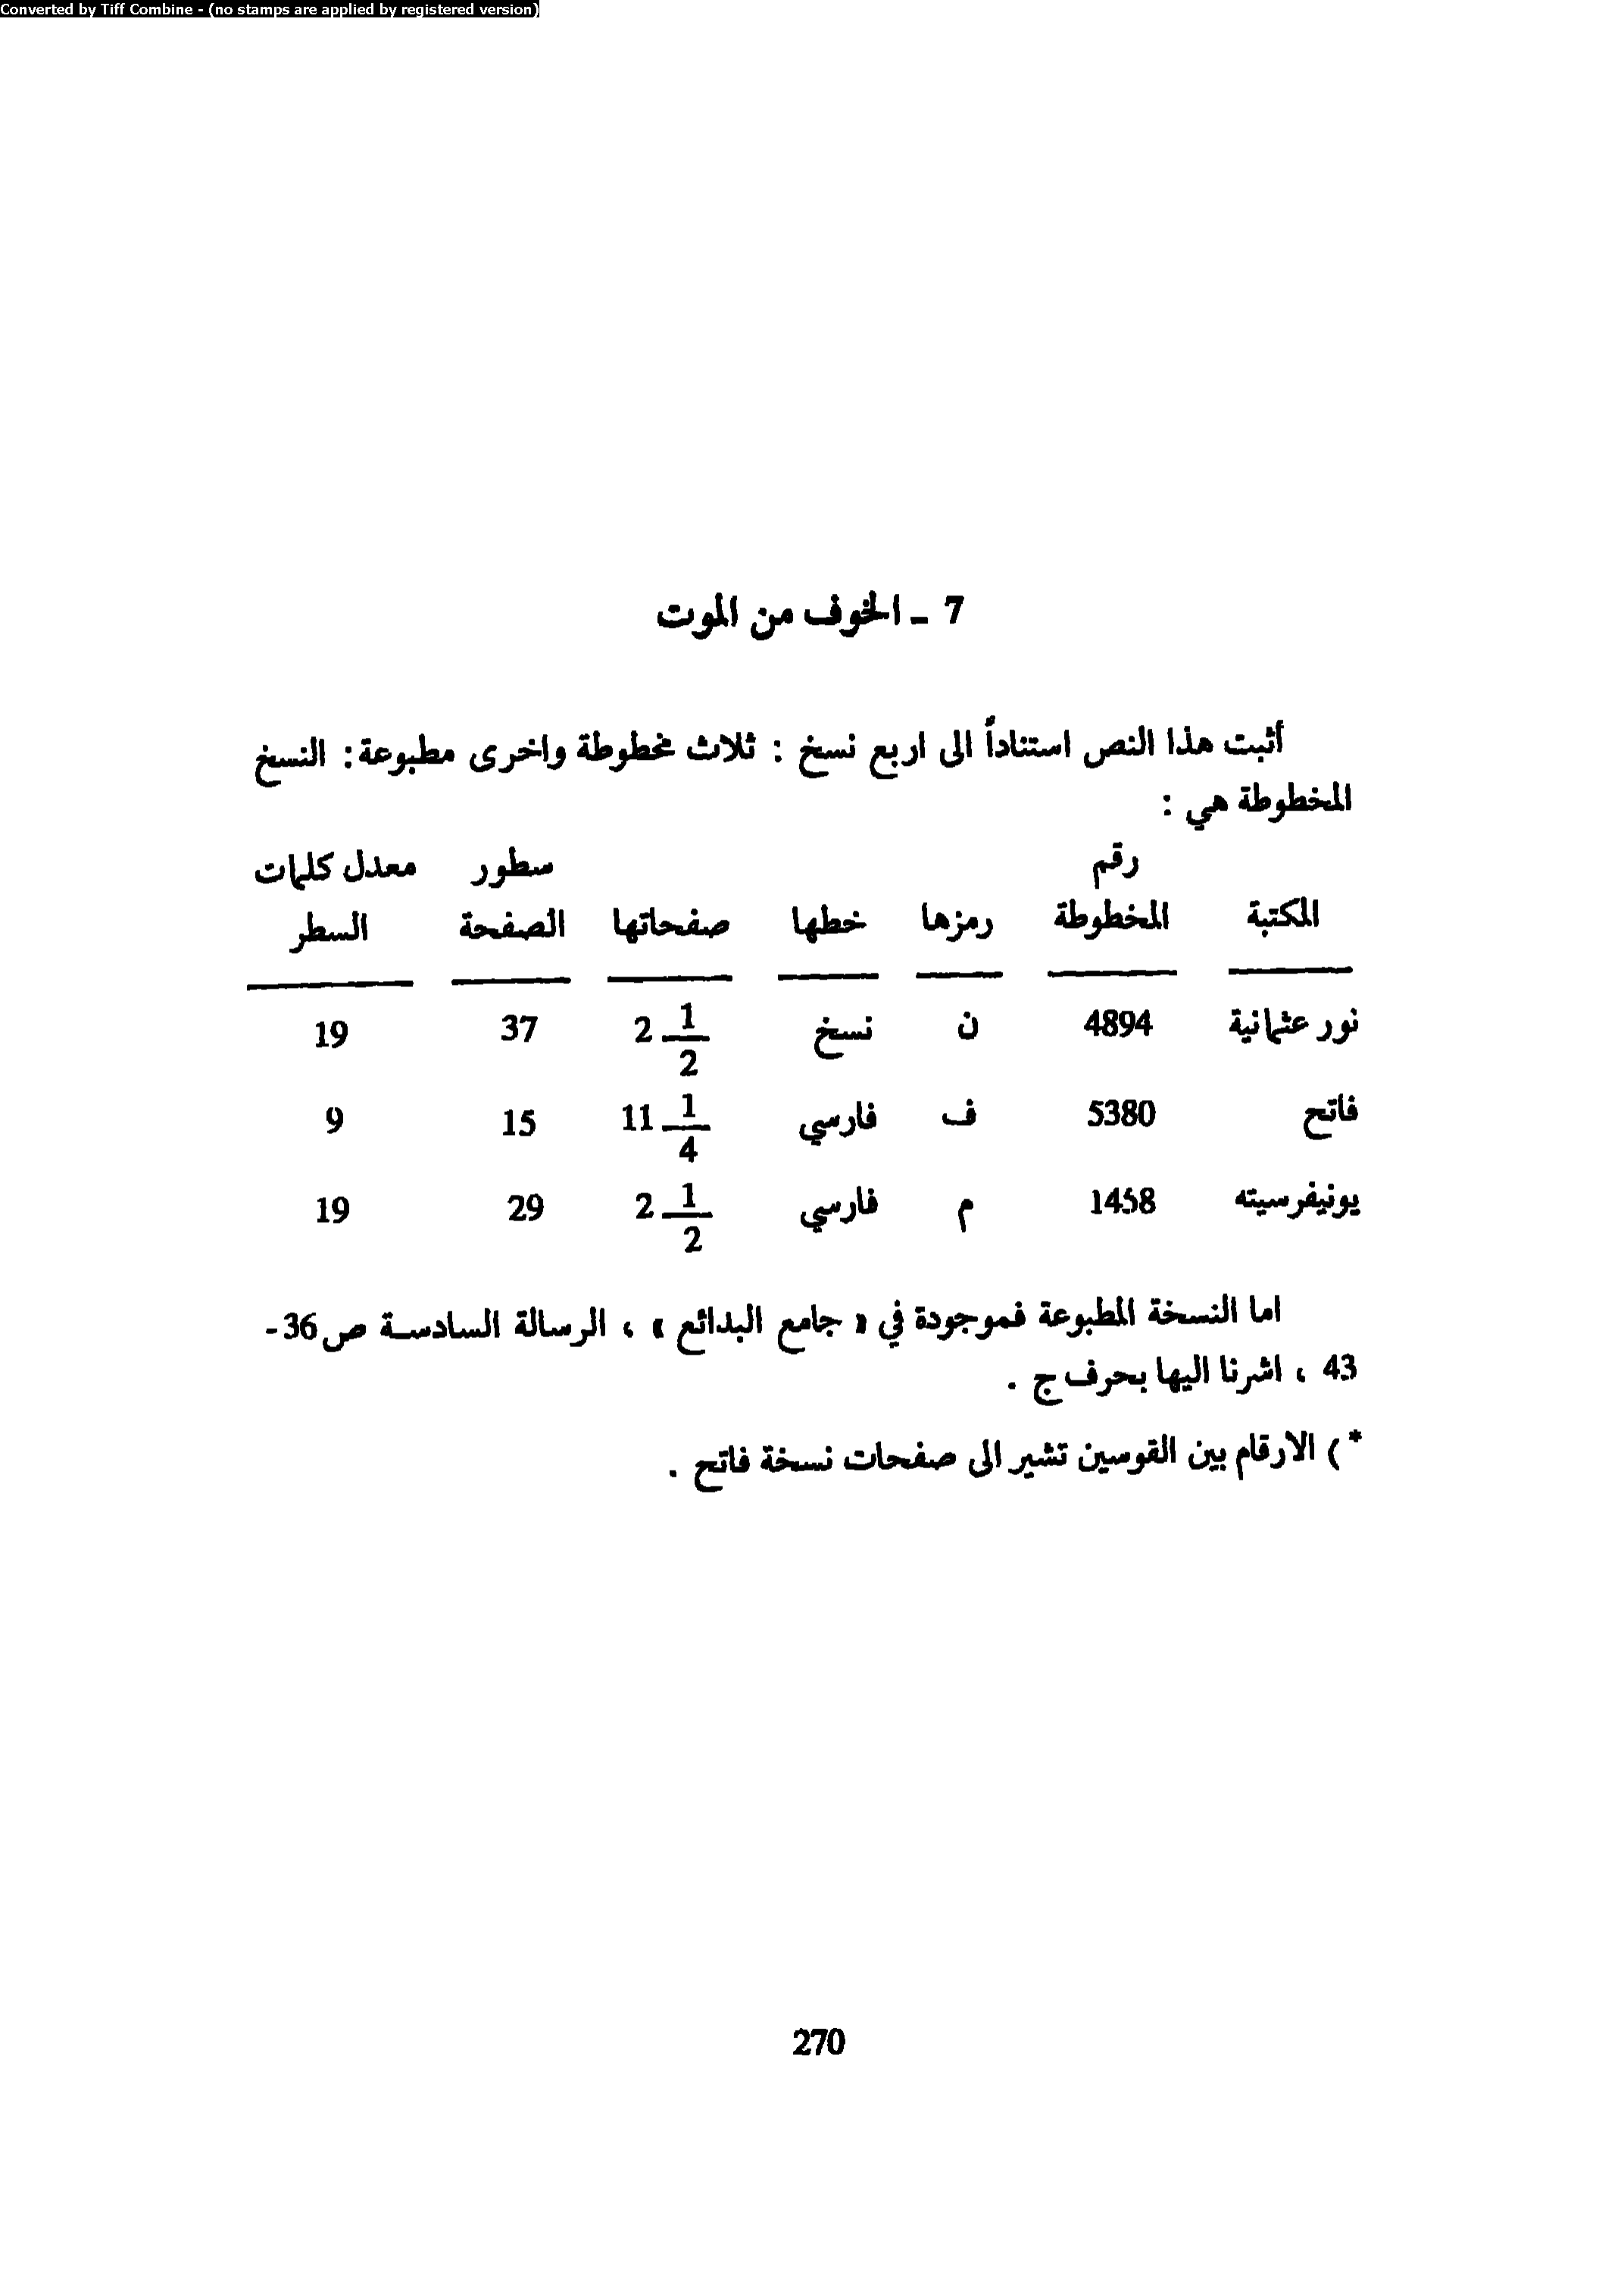 Converted by Tiff Combine - (no stamps are applied by registered version)
7 ـ الخوف من الموت
أثبت هذا النص استناداً الى اربع نسخ : ثلاث مخطوطة واخرى مطبوعة : النسخ
المخطوطة هي :
رقم سطور معدل كلمات
المكتبة المخطوطة رمزها خطها صفحاتها الصفحة السطر
نور عثمانية 4894 ن نسخ 2 1/2 37 19
فاتح 5380 ف فارسي 11 1/4 15 9
يونيفرسيته 1458 م فارسي 2 1/2 29 19
اما النسخة المطبوعة فموجودة في « جامع البدائع » ، الرسالة السادسة ص 36 -
43 ، اشرنا اليها بحرف ج .
* ) الارقام بين القوسين تشير الى صفحات نسخة فاتح .
270